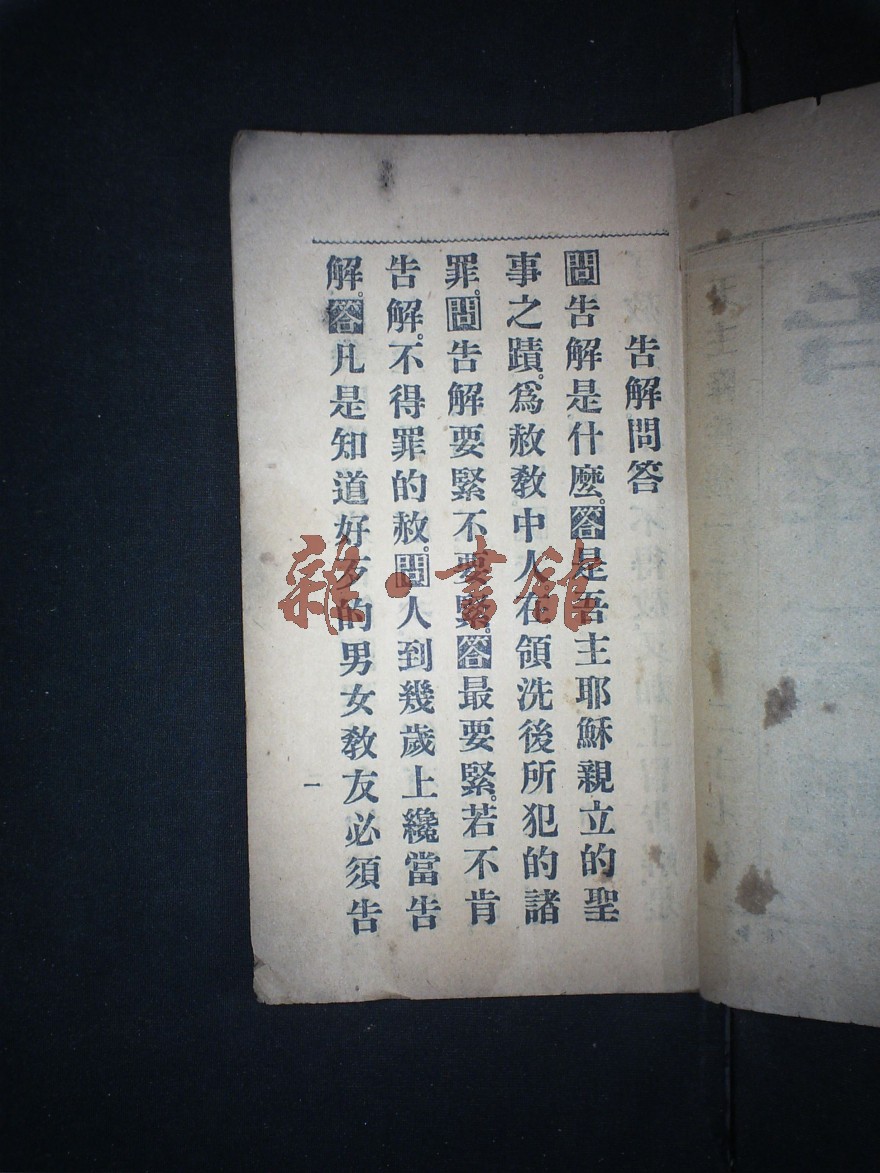 告解問答
問告解是什麼。答是吾主耶穌親立的聖
事之蹟。爲赦教中人在領洗後所犯的諸
罪。問告解要緊不要緊。答最要緊。若不肯
告解。不得罪的赦。問人到幾歲上纔當告
解。答凡是知道好歹的男女教友必須告
一
雜·書館